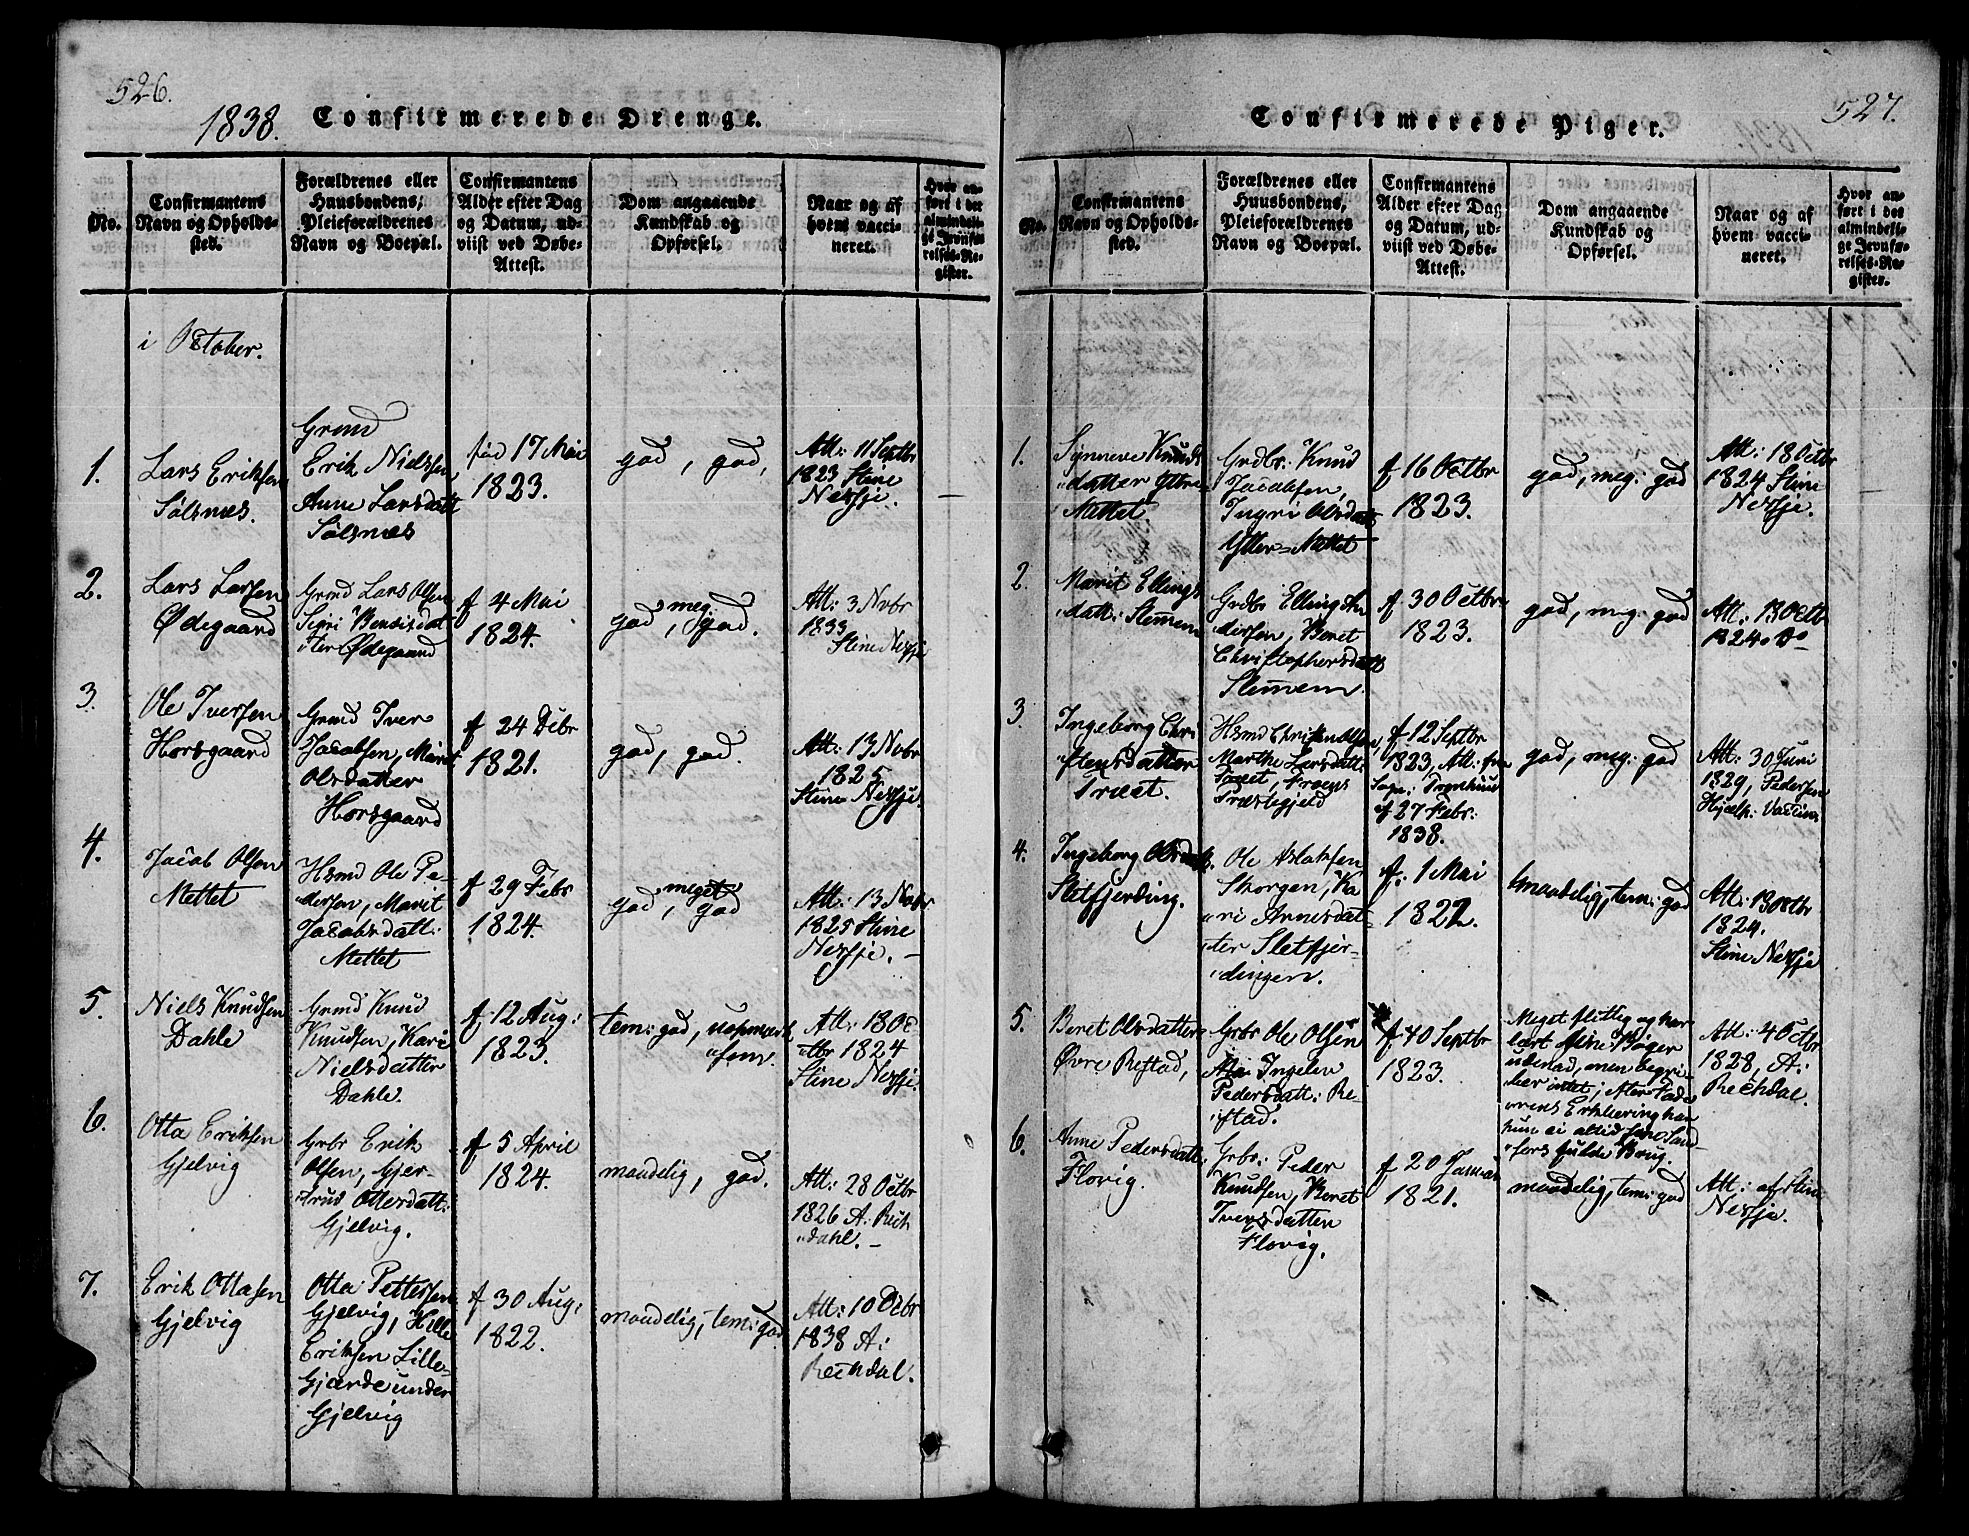 526.
1838. Confirmerede Drenge.
No.
Confirmantens
Navn og Opholds-
sted.
Forældrenes eller
Huusbondens,
Pleieforældrenes
Navn og Boepæl.
Confirmantens
Alder efter Dag
og Datum, ud-
viist ved Døbe-
Attest.
Dom angaaende
Kundskab og
Opførsel.
Naar og af
hvem vacci-
neret.
Hvor an-
ført i det
almindeli-
ge Jevnfø-
relses-Re-
gister.
i October.
1.
Lars Eriksen
Sølsnæs.
Grmd
Erik Nielsen
Anne Larsdatt
Sølsnæs
fød 17 Mai
1823.
god, god,
Att: 11 Septbr
1823 Stine
Nersje.
—
2.
Lars Larsen
Ødegaard
Grmd Lars Olsen
Sigri Bendisdat
ter Ødegaard
f 4 Mai
1824.
meg:
god, god.
Att: 3 Novbr
1833
Stine Nersje
3.
Ole Iversen
Horsgaard
Grmd Iver
Jacobsen, Marit
Olsdatter
Horsgaard
f 24 Debr
1821.
god, god.
Att: 13 Novbr
1825
Stine Nersje.
4.
Jacob Olsen
Mettet
Hsmd Ole Pe-
dersen, Marit
Jacobsdatt:
Mettet
f 29 Febr
1824.
meget
god, god
Att: 13 Novbr
1825 Stine
Nersje. —
5.
Niels Knudsen
Dahle
Grmd Knud
Knudsen, Kari
Nielsdatter
Dahle.
f 12 Aug:
1823.
tem: god, uopmærk
som.
Att: 18 Oc
tbr 1824
Stine Nersje.
6.
Otta Eriksen
Gjelvig
Grbr Erik
Olsen, Gjer-
trud Ottersdatt:
Gjelvig.
f 5 April
1824.
maadelig, god.
Att: 28 Octbr
1826 A: Rech
dahl. —
7.
Erik Ottasen
Gjelvig
Otta Pettersen
Gjelvig,
Eriksen Lille-
Gjærde under
Gjelvig
f 30 Aug:
1822.
maadelig, tem: god
Att: 10 Debr
1838 A:
Rechdal.
Confirmerede Piger.
527.
No.
Confirmantens
Navn og Opholds-
sted.
Forældrenes eller
Huusbondens,
Pleieforældrenes
Navn og Boepæl.
Confirmantens
Alder efter Dag
og Datum, ud-
viist ved Døbe-
Attest.
Dom angaaende
Kundskab og
Opførsel.
Naar og af
hvem vacci-
neret.
Hvor an-
ført i det
almindeli-
ge Jevnfø-
relses-Re-
gister.
1.
Synneve Knuds
datter Ytter
Mettet
Grdbr: Knud
Jacobsen,
Ingri Olsdatt
Ytter=Mettet
f 16 Octbr
1823.
god, meg: god
Att: 18 Octbr
1824 Stine
Nersje.
—
2
Marit Ellings
datt: Stemmem
Grdbr Elling An
dersen, Beret
Christophersdatt
Stemmem.
f 30 Octbr
1823.
god, meg: god
Att: 13 Octb
1824. Do
3
Ingeborg Chri
stensdatter
Træet.
Hsmd Christen Olsen,
Marthe Larsdatt:
Træet, Froens
Præstegjeld
f 12 Septbr
1823, Att: fra
f 27 Febr:
1838.
god, meg: god
Att: 30 Juni
1829, Pedersen
Hjælp: Vaccin
4.
Ingeborg Olsdatt.
Sletfjerding.
Ole Aslaksen
Skorgen, Ka
ri Arnesdat
ter Sletfjer-
dingen.
f: 1 Mai
1822.
maadelig, tem: god
Att: 13 Octbr
1824.
Stine Nersje
5.
Beret Olsdatter
Øvre Refstad,
Grbr Ole Olsen
Ingeleu
Pedersdatt: Re-
fstad.
f 40 Septbr
1823.
Meget flittig og har
lært sine Bøger
udenad, men begri
ber intet; efter Fade
rens Erklæring har
hun ei altid sine Sand
sers fulde Brug.
Att: 4 Octbr
1828, A:
Rechdal.
6.
Anne Pedersdatt:
Flovig.
Grbr: Peder
Knudsen, Beret
Iversdatter
Flovig.
f 20 Januar
1821.
maadelig, tem: god
Att: af Stine
Nersje.